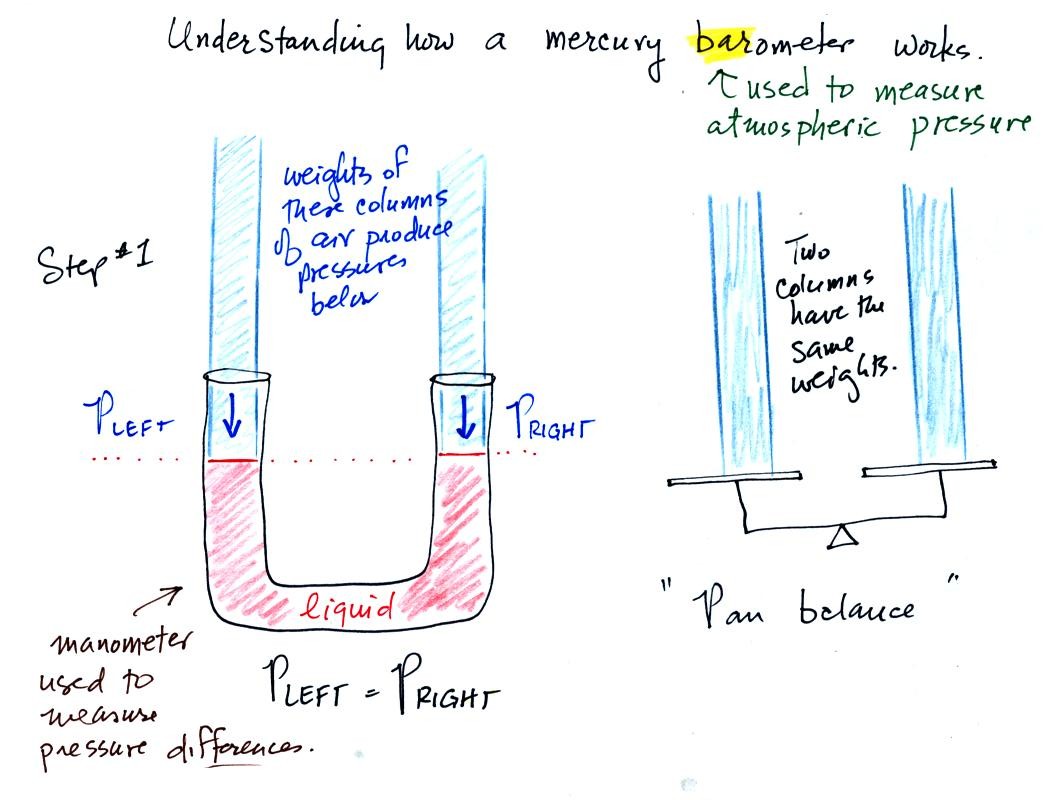 Understanding how a mercury barometer works.
↑ used to measure
atmospheric pressure
Step #1
weights of
these columns
of air produce
pressures
below
Two
columns
have the
same
weights.
PLEFT
PRIGHT
liquid
manometer
used to
measure
pressure differences.
PLEFT = PRIGHT
"Pan balance"